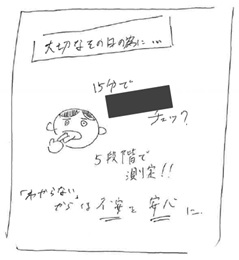 大切なその日の為に…
15分で
チェック?
5段階で
測定!!
「わからない」
からは不安を安心に